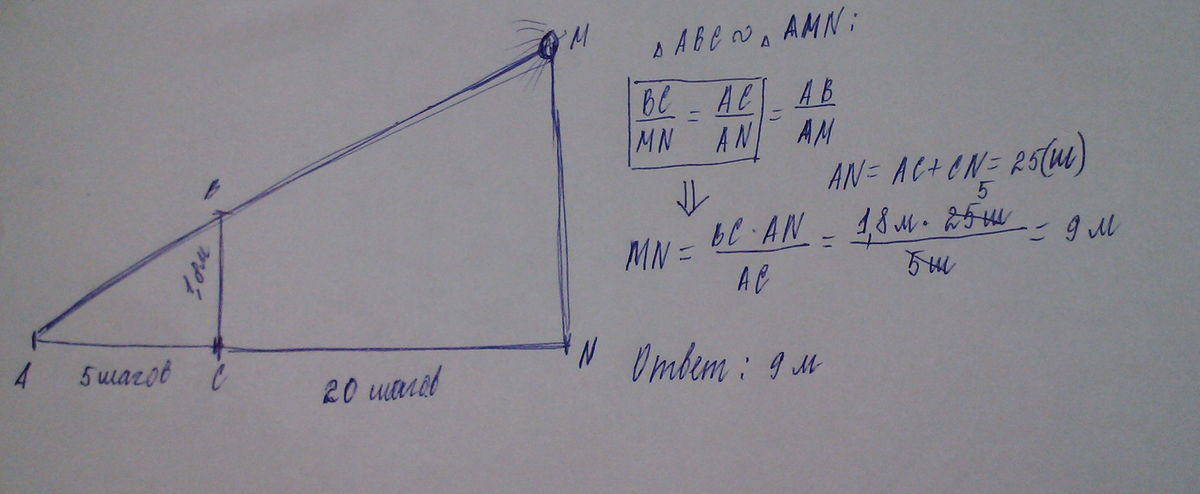 M
B
1,8м
A
5 шагов
C
20 шагов
N
△ ABC ∾ △ AMN:
BC/MN = AC/AN = AB/AM
AN = AC + CN = 25(ш)
⇓
5
MN = BC · AN/AC = 1,8м · 25ш/5ш = 9 м
Ответ: 9 м